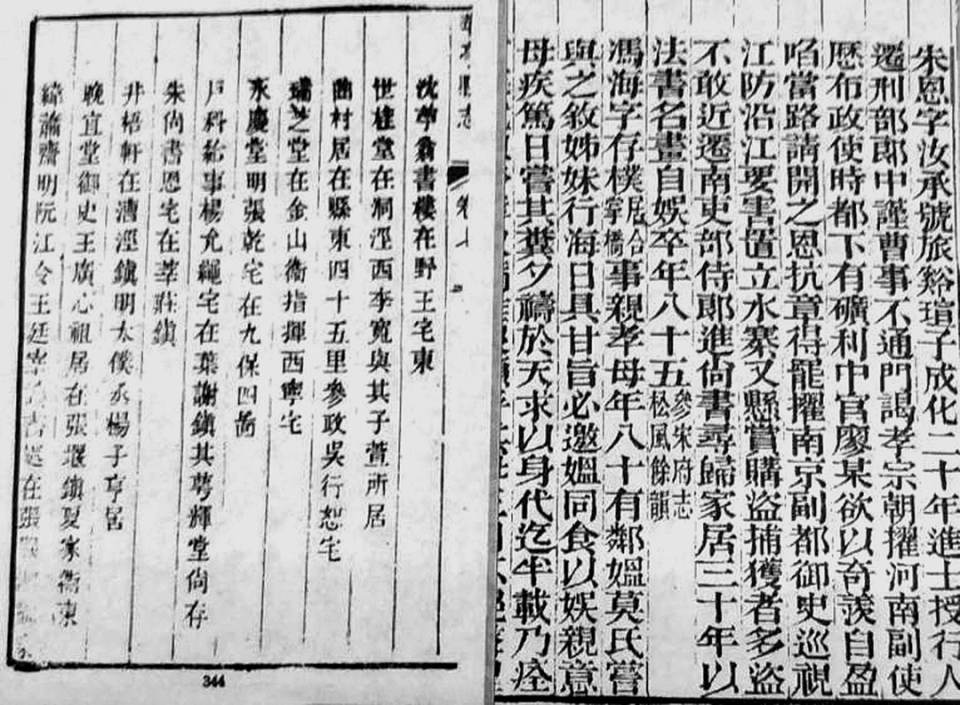 朱恩字汝承號旅谿瑄子成化二十年進士授行人
遷刑部郎中謹曹事不通門謁孝宗朝擢河南副使
歷布政使時都下有礦利中官廖某欲以奇羨自盈
啗當路請開之恩抗章得罷擢南京副都御史巡視
江防沿江要害置立水寨又懸賞購盜捕獲者多盜
不敢近遷南吏部侍郎進尚書尋歸家居三十年以
法書名畫自娛卒年八十五參朱府志松風餘韻
馮海字存樸居合掌橋事親孝母年八十有鄰媼莫氏嘗
與之敘姊妹行海日具甘旨必邀媼同食以娛親意
母疾篤日嘗其糞夕禱於天求以身代迄半載乃痊
縣志
卷
書樓在野王宅東
世桂堂在洞涇西李寬與其子萱所居
南村居在縣東四十五里參政吳行恕宅
瑞芝堂在金山衞指揮西寧宅
永慶堂明張乾宅在九保四啚
戶科給事楊允繩宅在葉謝鎮其萼輝堂尚存
朱尚書恩宅在莘莊鎮
井梧軒在漕涇鎮明太僕丞楊子亨居
晚宜堂御史王廣心祖居在張堰鎮夏家衖東
緯蕭齋明阮江令王廷宰在張
344